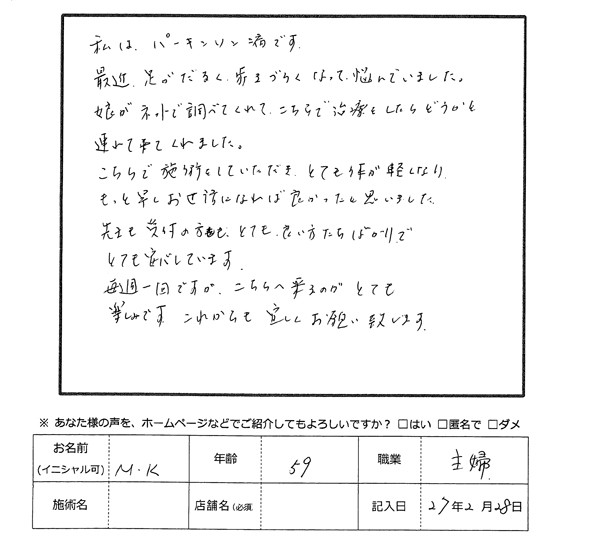 私は、パーキンソン病です。
最近、足がだるく、歩きづらくなって、悩んでいました。
娘がネットで調べてくれて、こちらで治療をしたらどうかと
連れて来てくれました。
こちらで施術をしていただき、とても体が軽くなり、
もっと早くお世話になれば良かったと思いました。
先生も受付の方も、とても良い方たちばかりで
とても安心しています。
毎週一回ですが、こちらへ来るのがとても
楽しみです。これからも宜しくお願い致します。
※ あなた様の声を、ホームページなどでご紹介してもよろしいですか？ □はい □匿名で □ダメ
お名前 (イニシャル可) M・K 年齢 59 職業 主婦
施術名 店舗名 (必須 記入日 27年2月28日